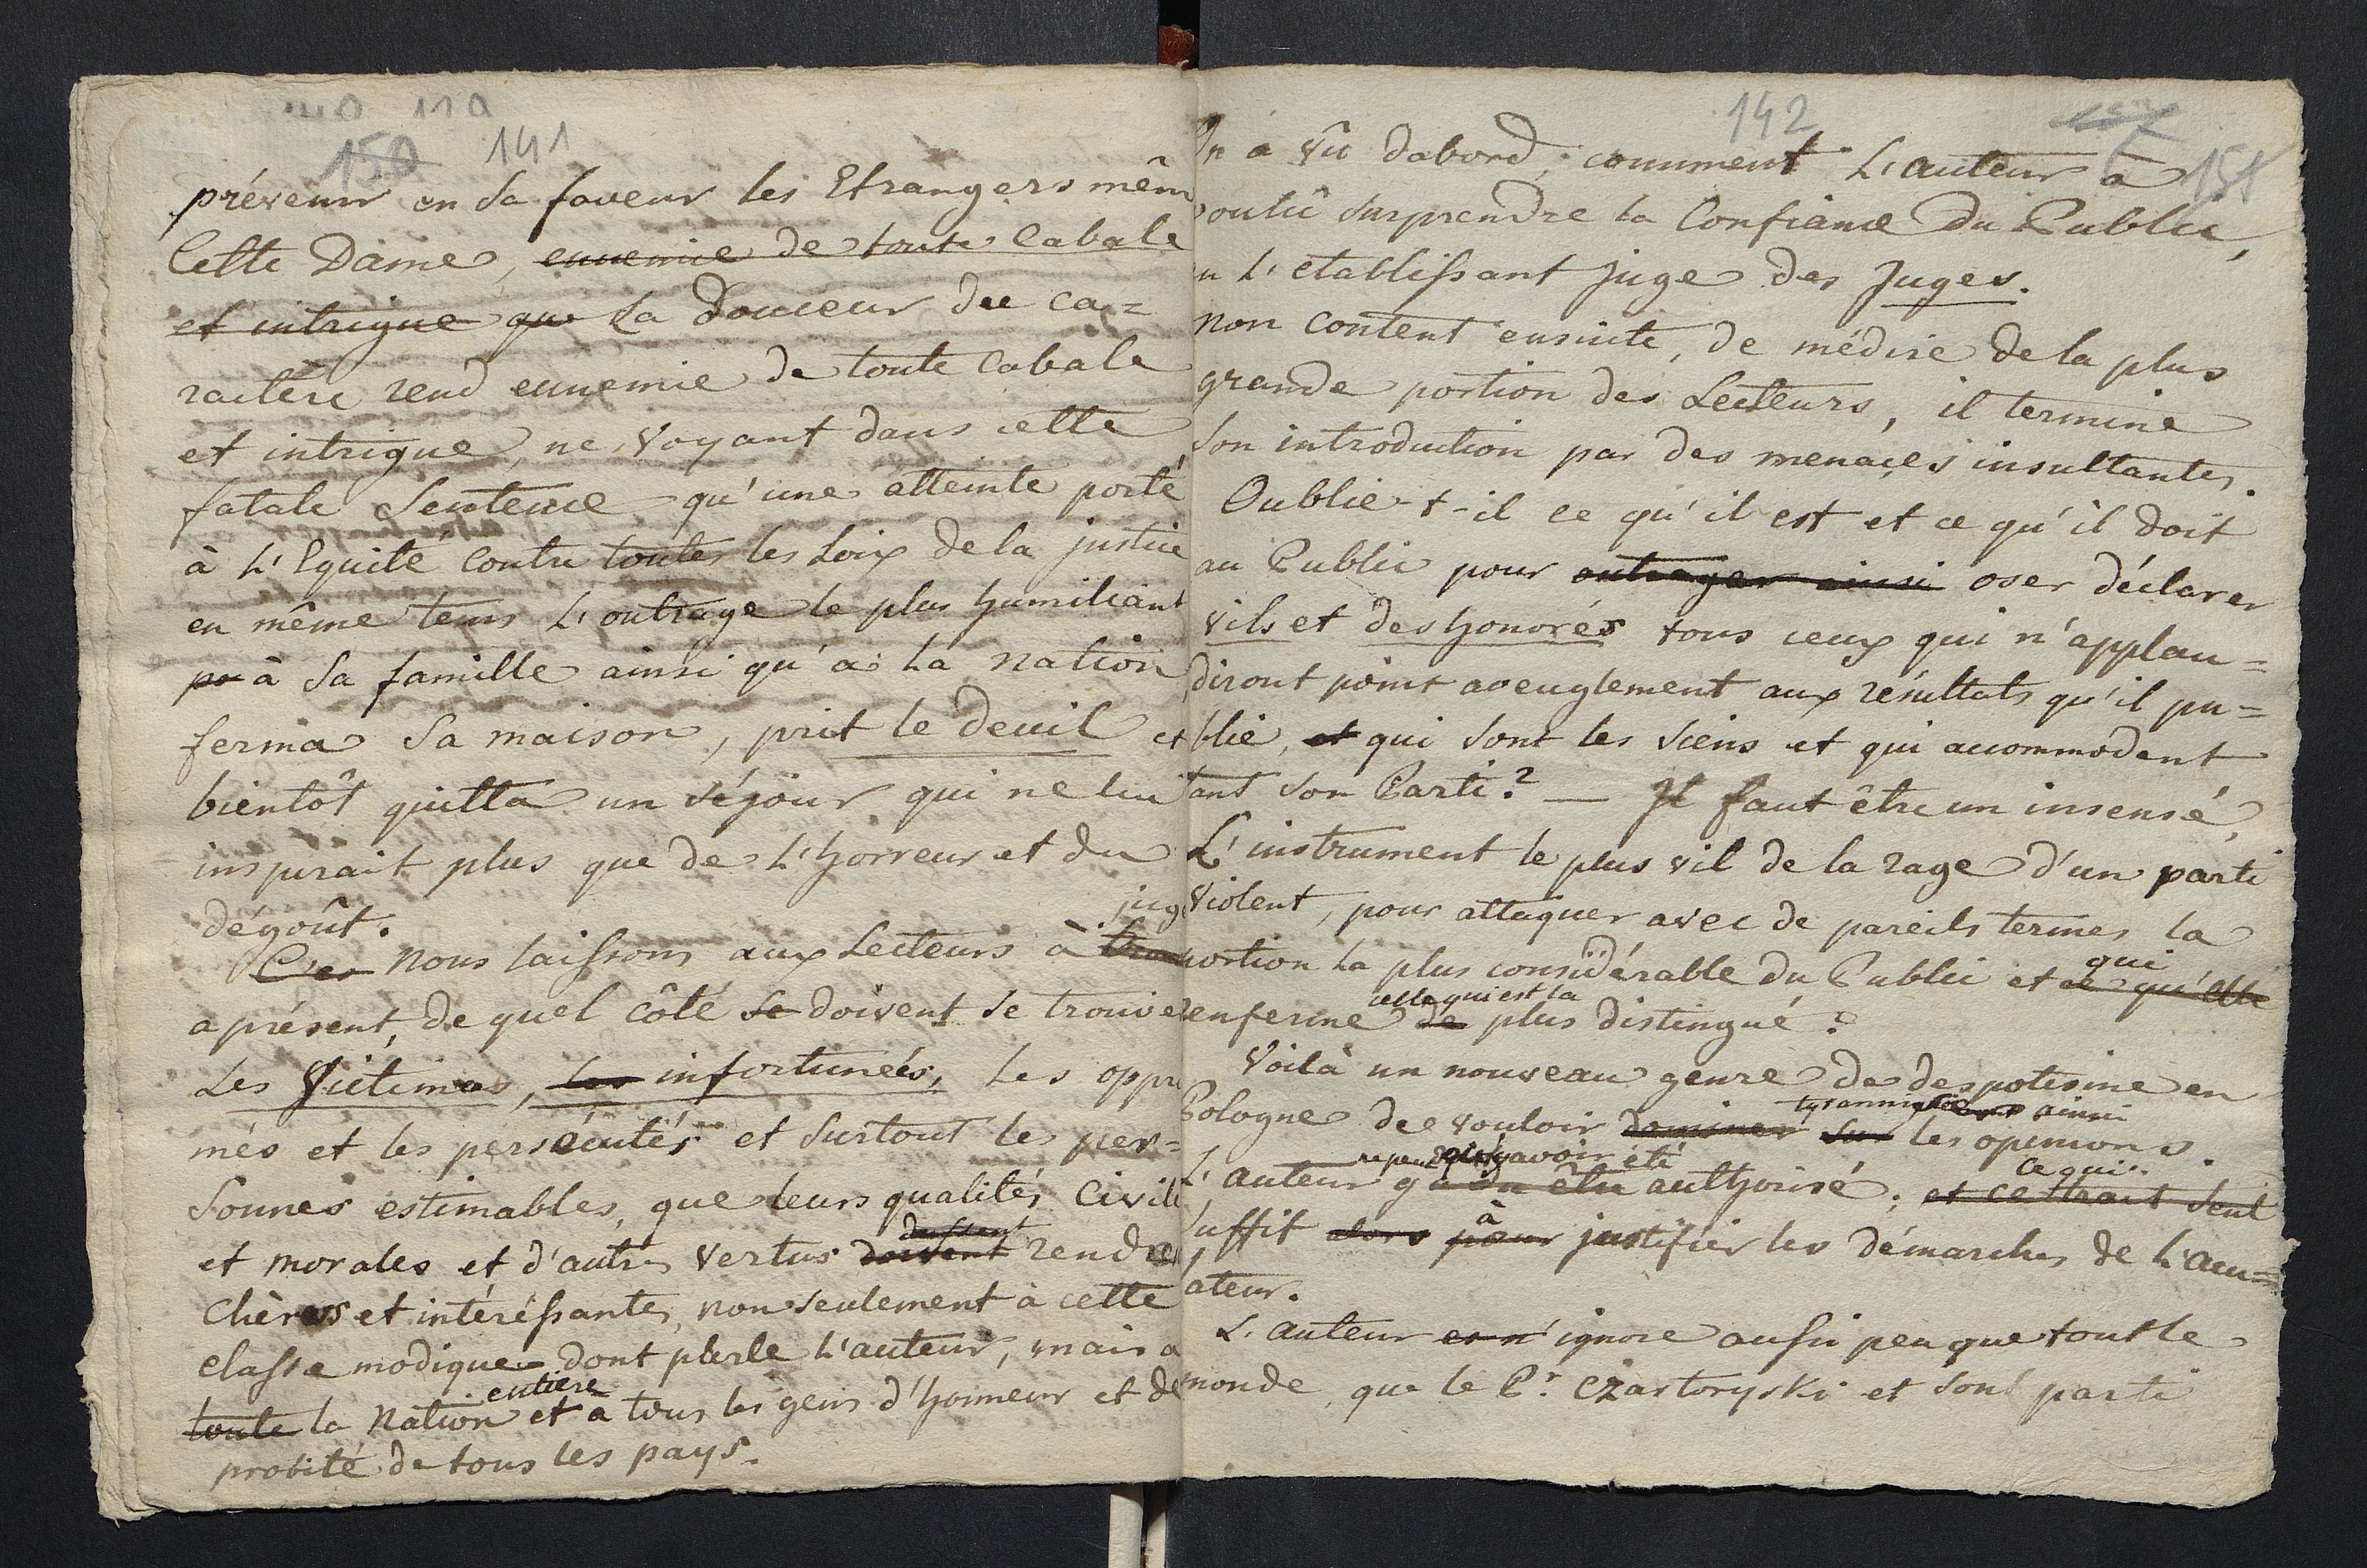 110 110
150 141
prévenir en sa faveur les Etrangers mêm
Cette Dame, ennemie de toute Cabale
et intrigue que La Douceur du ca=
ractère rend ennemie de toute Cabale
et intrigue, ne voyant dans cette
fatale Sentence qu'une atteinte porté
à L'Equité contre toutes les Loix de la justice
en même tems L'outrage le plus humiliant
po à Sa famille ainsi qu'à La nation
ferma Sa maison, prit le deuil et
bientôt quitta un séjour qui ne lui
inspirait plus que de L'horreur et du
dégoût.
jug
Nous laissons aux Lecteurs à
a présent, de quel côté se doivent se trouver
Les Victimes, les infortunées, Les oppri
més et les persécutés et surtout les per=
sonnes estimables, que leurs qualités Civile
dussent
et morales et d'autres vertus doivent rendre
Chères et intéréssantes, non seulement à cette
classe modique dont parle L'auteur, mais a
entiere
toute la Nation et à tous les gens d'honneur et de
probité de tous les pays.
142
151
On à vû dabord, comment L'auteur à
voulû surprendre la Confiance du Public,
en L'etablissant juge des Juges.
non content ensuite, de médire de la plus
grande portion des Lecteurs, il termine
son introduction par des menaces insultantes.
Oublie-t-il ce qu'il est et ce qu'il doit
au Public pour outrager ainsi oser déclarer
vils et deshonorés tous ceux qui n'applau=
diront point aveuglement aux résultats qu'il pu=
blie, et qui sont les siens et qui accommodent
tant son Parti? — Il faut être un insensé,
L'instrument le plus vil de la rage d'un parti
violent, pour attaquer avec de pareils termes la
portion La plus considérable du Public et ce qu'elle
qui
celle qui est la
renferme de plus distingué?
Voilà un nouveau genre de despotisme en
tyranniser ainsi
Pologne de vouloir dominer sur les opinions.
avoir été
L'auteur y a du être authorisé; et ce trait seul
ce qui
suffit alors pour à justifier les démarches de L'accu=
sateur.
L'auteur en n'ignore aussi peu que tout le
monde, que le Pr. Czartoryski et sont parti